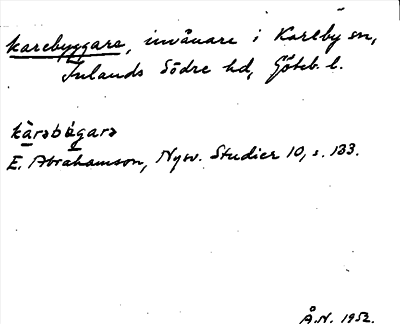 karebyggare, invånare i Kareby sn,
Inlands Södre hd, Göteb. l.
kàrəbýgarə
E. Abrahamson, Nysv. Studier 10, s. 133.
Å.N. 1952.